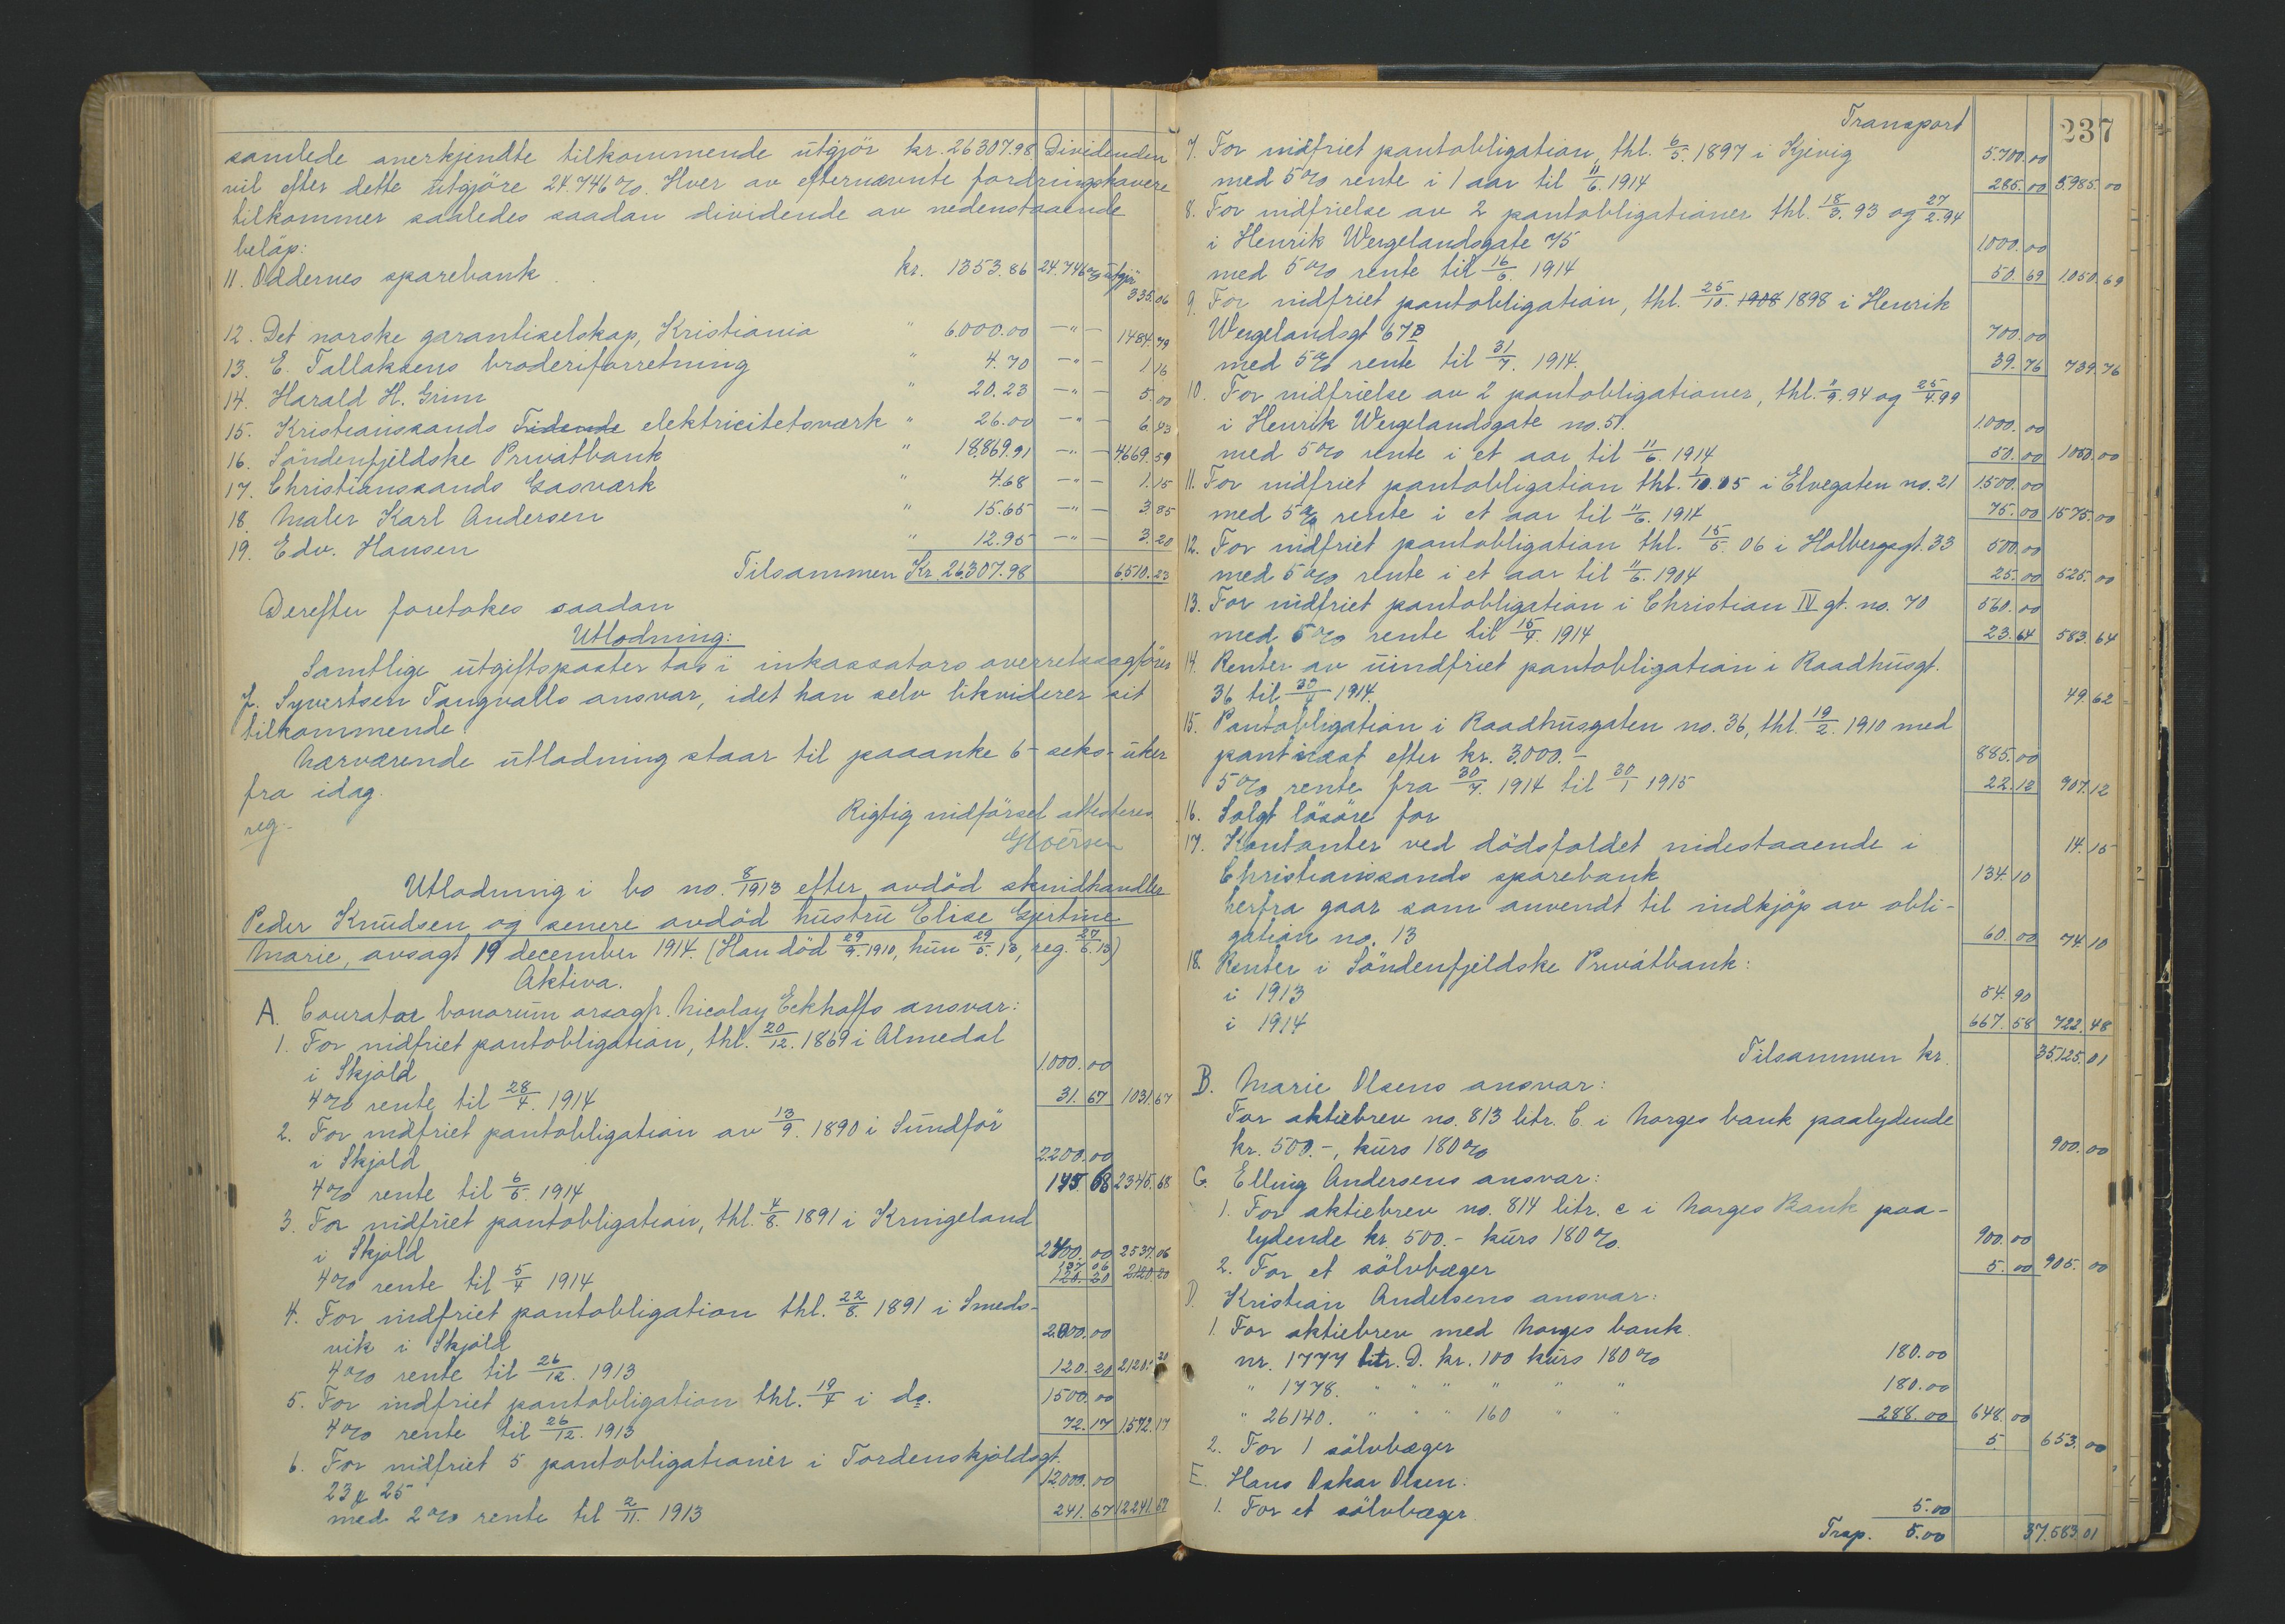 samlede anerkjendte tilkommende utgjör kr. 26307.98. Dividenden
vil efter dette utgjöre 24.746%. Hver av efternævnte fordringshavere
tilkommer saaledes saadan dividende av nedenstaaende
beløp:
11. Oddernes sparebank kr. 1353.86 24.746% utgjör 335.06
12. Det norske garantiselskap, Kristiania " 6.000.00 —"— 1484.79
13. E. Tallaksens broderiforretning " 4.70 —"— 1.16
14. Harald H. Grim " 20.23 —"— 5.00
15. Kristianssands Tidende elektricitetsværk " 26.00 —"— 6.43
16. Söndenfjeldske Privatbank " 18.869.91 —"— 4669.59
17. Christianssands Gasværk " 4.68 —"— 1.15
18. Maler Karl Andersen " 15.65 —"— 3.85
19. Edv. Hansen " 12.95 —"— 3.20
Tilsammen Kr. 26.307.98 6.510.23
Derefter foretokes saadan
Utlodning:
Samtlige utgiftsposter tas i inkassators overretssagförer
J. Syvertsen Tangvalls ansvar, idet han selv likviderer sit
tilkommende.
Nærværende utlodning staar til paaanke 6 - seks - uker
fra idag.
reg.- Rigtig indförsel attesteres
Utlodning i bo no. 8/1913 efter avdöd skindhandler
Peder Knudsen og senere avdöd hustru Elise Gjertine
Marie, avsagt 19 december 1914. (Han död 29/9. 1910, hun 29/5. 13, reg. 27/6. 13)
Aktiva.
A. Courator bonorum orsagf. Nicolay Eckhoffs ansvar:
1. For indfriet pantobligation, thl. 20/12. 1869 i Almedal
i Skjold 1.000.00
4% rente til 28/4. 1914 31.67 1031.67
2. For indfriet pantobligation av 13/9. 1890 i Sundför
i Skjold 2.200.00
4% rente til 6/5. 1914 145.68 2345.68
3. For indfriet pantobligation, thl. 4/8. 1891 i Kringeland
i Skjold 2400.00 2537.06
4% rente til 5/4 1914 137.06 120.20 2120.20
4. For indfriet pantobligation thl. 22/8. 1891 i Smeds-
vik i Skjold 2.000.00
4% rente til 26/12. 1913 120.20 2120.20
5. For indfriet pantobligation thl. 19/4 i do. 1500.00
4% rente til 26/12. 1913 72.17 1.572.17
6. For indfriet 5 pantobligationer i Tordenskjoldsgt.
23 & 25 12.000.00
med 2% rente til 2/11. 1913 241.67 12.241.67
237
Transport
7. For indfriet pantobligation, thl. 6/5. 1897 i Kjevig 5.700.00
med 5% rente i 1 aar til 11/6. 1914 285.00 5.985.00
8. For indfrielse av 2 pantobligationer thl. 18/3. 93 og 27/2. 94
i Henrik Wergelandsgate 75 1000.00
med 5% rente til 16/6. 1914 50.69 1.050.69
9. For indfriet pantobligation, thl. 25/10. 1908 1898 i Henrik
Wergelandsgt 67B 700.00
med 5% rente til 31/7. 1914. 39.76 739.76
10. For indfrielse av 2 pantobligationer, thl. 11/9. 94 og 25/4. 99
i Henrik Wergelandsgate no. 51. 1.000.00
med 5% rente i et aar til 11/6. 1914 50.00 1050.00
11. For indfriet pantobligation thl. 1/10. 05 i Elvegaten no. 21 1.500.00
med 5% rente i et aar til 11/6. 1914 75.00 1575.00
12. For indfriet pantobligation thl. 15/5. 06 i Holbergsgt. 33 500.00
med 5% rente i et aar til 11/6. 1904 25.00 525.00
13. For indfriet pantobligation i Christian IV gt. no. 70 560.00
med 5% rente til 15/4. 1914 23.64 583.64
14. Renter av uindfriet pantobligation i Raadhusgt.
36 til 30/4 1914. 49.62
15. Pantobligation i Raadhusgaten no. 36, thl. 19/2. 1910 med
panticaat efter kr. 3.000.- 885.00
5% rente fra 30/7. 1914 til 30/1 1915 22.12 907.12
16. Solgt lösöre for
17. Kontanter ved dödsfaldet indestaaende i 14.15
Christianssands sparebank 134.10
herfra gaar som anvendt til indkjöp av obli-
gation no. 13 60.00 74.10
18. Renter i Söndenfjeldske Privatbank:
i 1913 54.90
i 1914 667.58 722.48
Tilsammen kr. 35.125.01
B. Marie Olsens ansvar:
For aktiebrev no. 813 litr. C. i Norges bank paalydende
kr. 500.-, kurs 180% 900.00
C. Elling Andersens ansvar:
1. For aktiebrev no. 814 litr. c i Norges Bank paa-
lydende kr. 500.- kurs 180%. 900.00
2. For et sölvbæger 5.00 905.00
D. Kristian Andersens ansvar:
1. For aktiebrev med Norges bank.
nr. 1777 litr. D. kr. 100 kurs 180% 180.00
" 1778. " " " " " " 180.00
" 26140. " " " 160 " " 288.00 648.00
2. For 1 sölvbæger 5 653.00
E. Hans Oskar Olsen.
1. For et sölvbæger 5.00
Trsp. 5.00 37.583.01